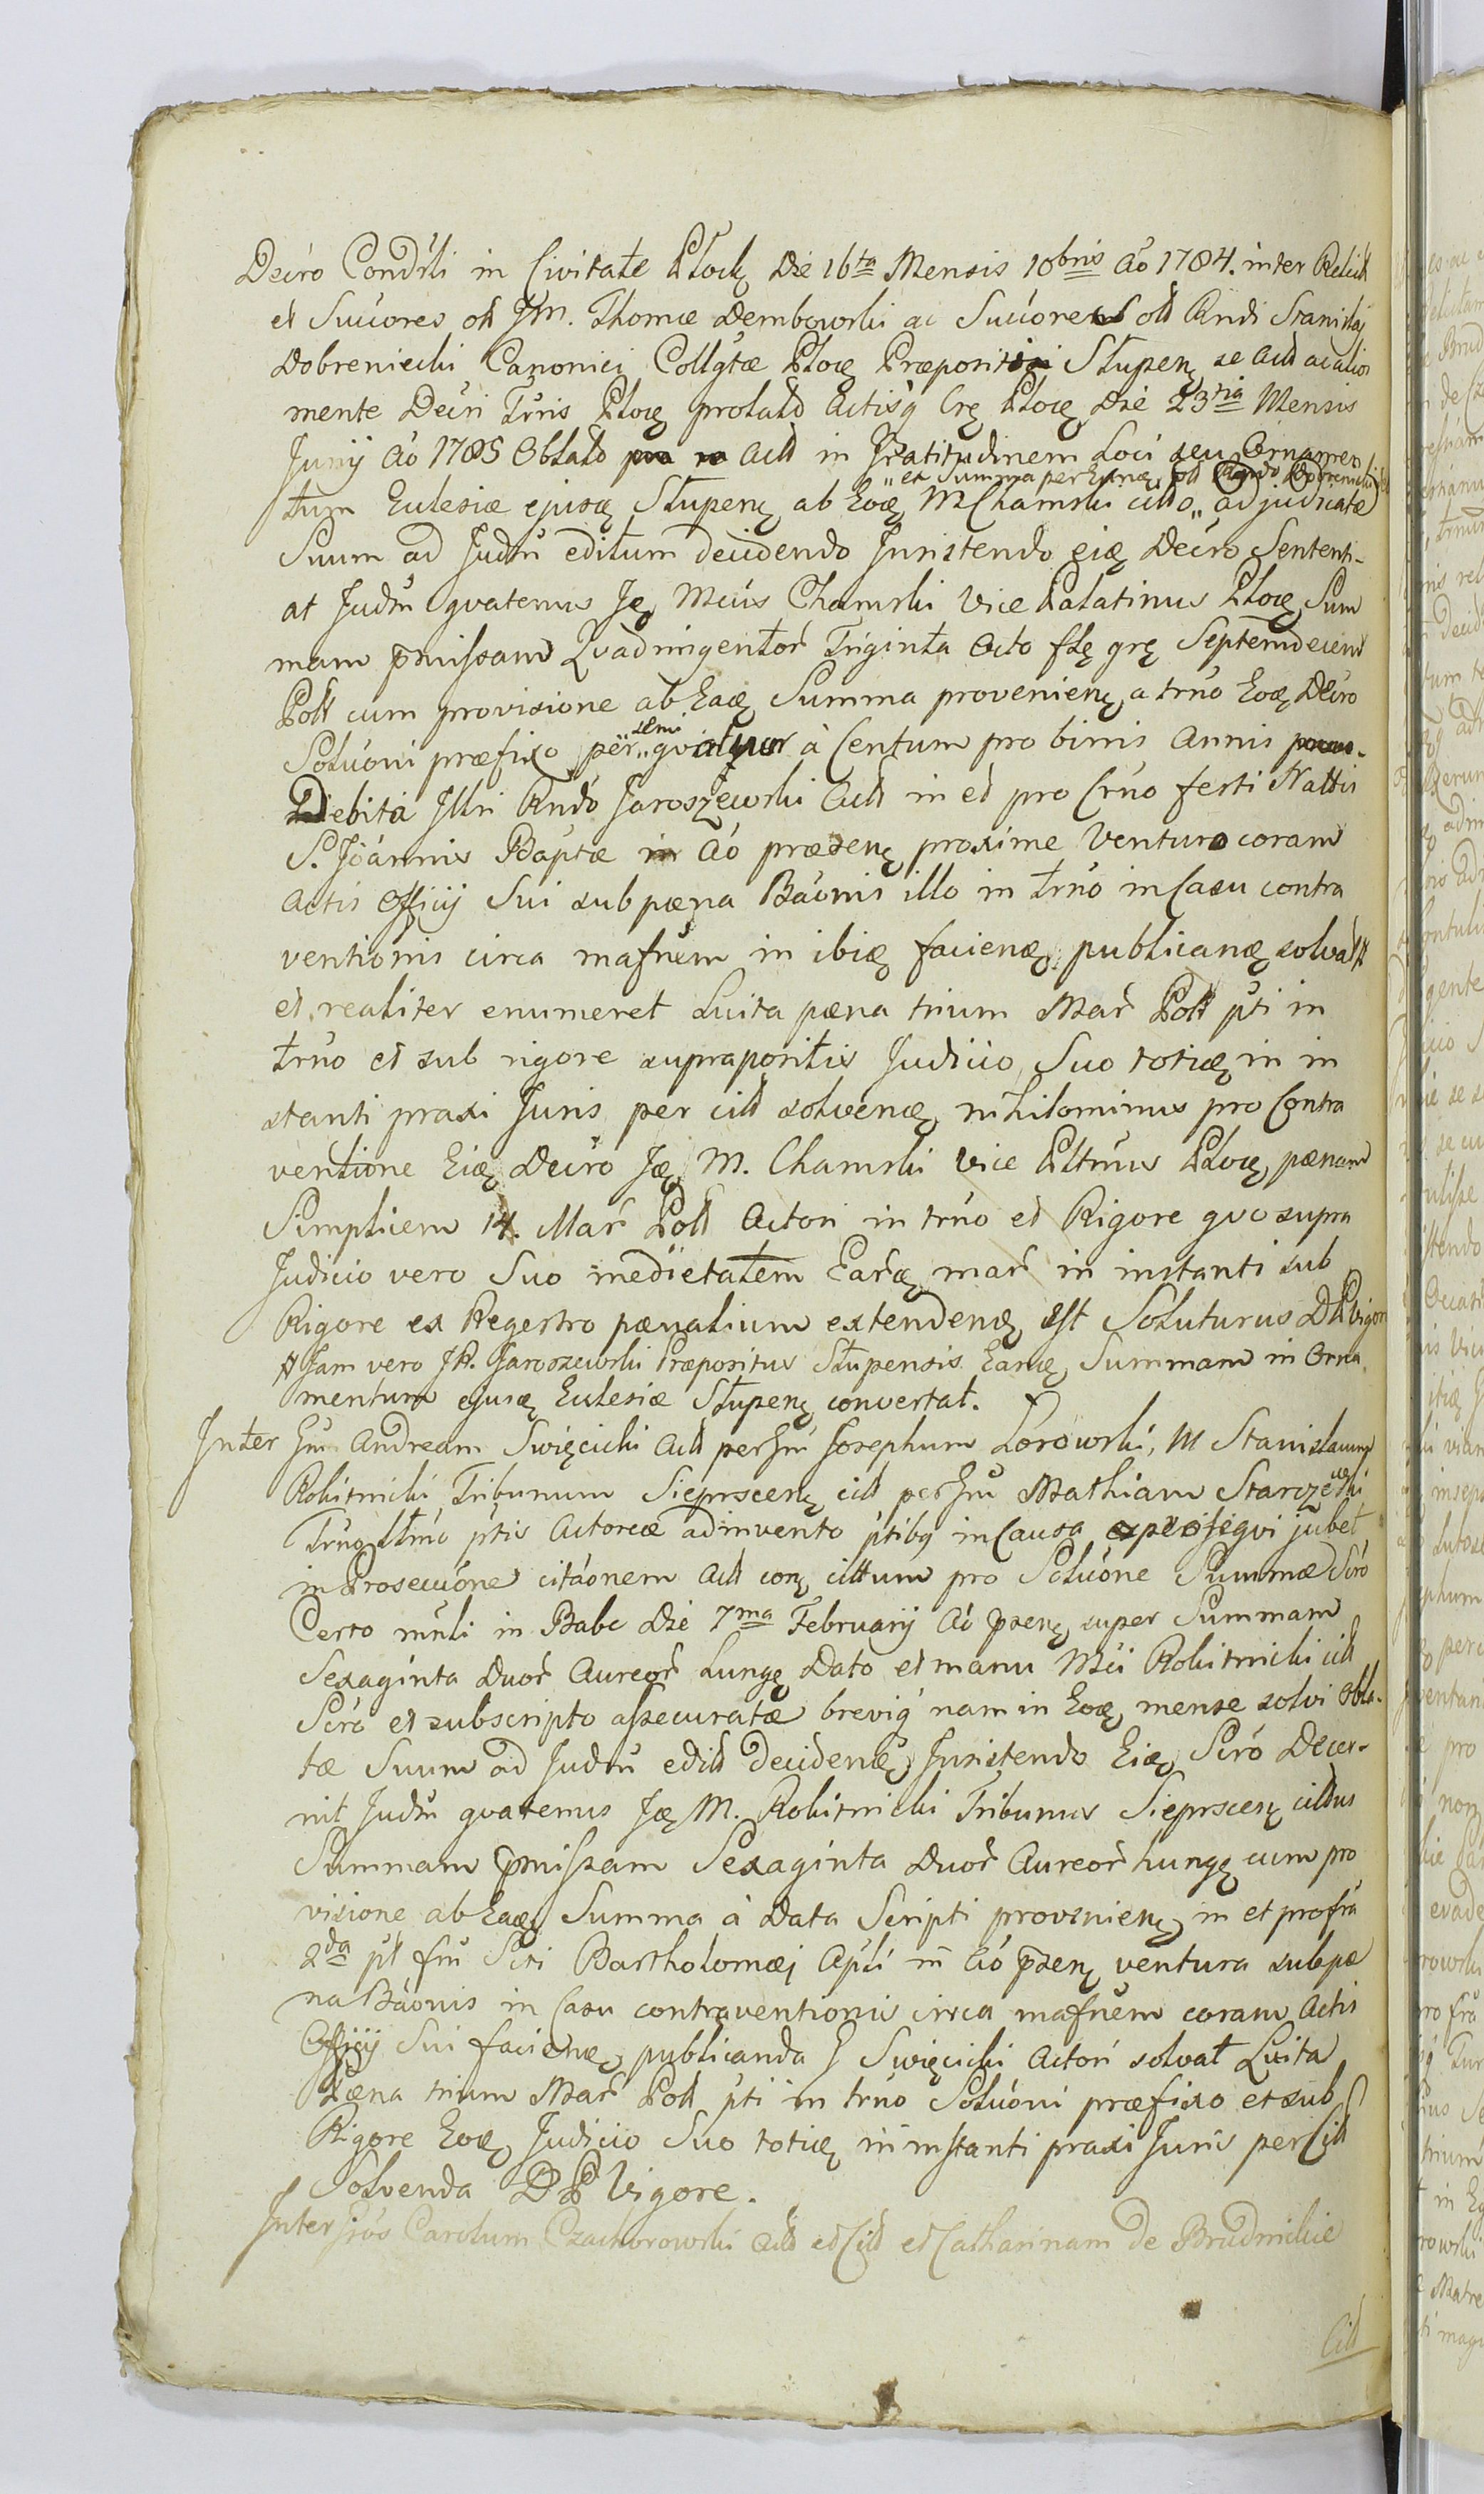 Decro Condrli in Civitate Płock Die 16ta Mensis 10bris Ao 1784. inter Relict
et Succores olt Jm. Thomæ Dembowski ac Succores olt Rndi Stanislaj
Dobrenieckj Canonici Collgtæ Płocę Præpositi Słupenę se Actt ac alios
mente Decri Tŕnis Płocę prolato Actisq Crę Płocę Die 23tia Mensis
Junij Ao 1785 Oblato Actt in Gratitudinem Loci seu Ornamen
„ex Summa per Eundę olt Rndo Dobreniecki
tum Eclesiæ ejusdę Słupenę ab Eoę M Chamski citto „ adjudicatæ
Suum ad Judm editum decidendo Insistendo eię Decro Sententi-
at Judm qvatenus Ję Mcus Chamski Vice Palatinus Płocę Sum
mam pmissam Qvadringentor Triginta Octo flę grę Septemdecem
Poll cum provisione ab Eaę Summa provenienę a trno Eoę Decro
„semi
Soluoni præfixo per„ qvi à Centum pro binis Annis
Debita Illri Rndo Jaroszewski Actt in et pro Crno festi Nattis
S. Joannis Baptæ Ao præsenę proxime Venturo coram
Actis Officij Sui sub pæna Baonis illo in trno in Casu contra
ventionis circa mafnem in ibię facienę, publicanę solvat
et realiter enumeret Luita pæna trium Mar Poll pti in
trno et sub rigore supra positis Judicio Suo totię in in
stanti praxi Juris per citt solvenę, nihilominus pro Contra
ventione Eię Decro Ję M. Chamski Vice Płtnus Płocę, pænam
Simplicem 14. Mar Poll Actori in trno et Rigore qvo supra
Judicio vero Suo medietatem Earę mar in instanti sub
Rigore ex Regestro pænalium extendenę est Soluturus D P Vigor
# Jam vero JR. Jaroszewski Præpositus Słupensis Eanę Summam in Orna
mentum ejusę Eclesiæ Słupenę convertat.
Inter Gm Andream Swięcicki Actt per Gm Josephum Zorowski, M Stanislaum
Rokitnicki Tribunum Sieprscenę citt per Gm Mathiam Starczewski
Trno ltmo ptis Actoreæ adinvento ptibq in Causa persequi jubet
in Prosecuone citaonem Actt conę cittum pro Soluone Summæ Scro
Certo mnli in Babc Die 7ma Februarij Ao psenę super Summam
Sexaginta Duor Aureor Lungę Dato et manu Mci Rokitnicki citt
Scro et subscripto assecuratæ breviq nam in Eoę mense solvi obla-
tæ Suum ad Judm editt Decidenę Insistendo Eię Scro Decer-
nit Judm qvatenus Ję M. Rokitnicki Tribunus Sieprscenę cittus
Summam pmissam Sexaginta Duor Aureor hungę cum pro
visione ab Eaę Summa à Data Scripti provenienę in et pro fra
2da pt fm Scti Bartholomæj Apli in Ao psenę ventura sub pæ
na Baonis in Casu contraventionis circa mafnem coram Actis
Officij Sui facienę, publicanda G Swięcicki Actori solvat Luita
Pæna trium Mar Poll pti in trno Soluoni præfixo et sub
Rigore Eoę Judicio Suo totię in instanti praxi Juris per Citt
Solvenda D P Vigore.
Inter Gros Carolum Czachorowski Actt et Citt et Catharinam de Brudnickie
Citt